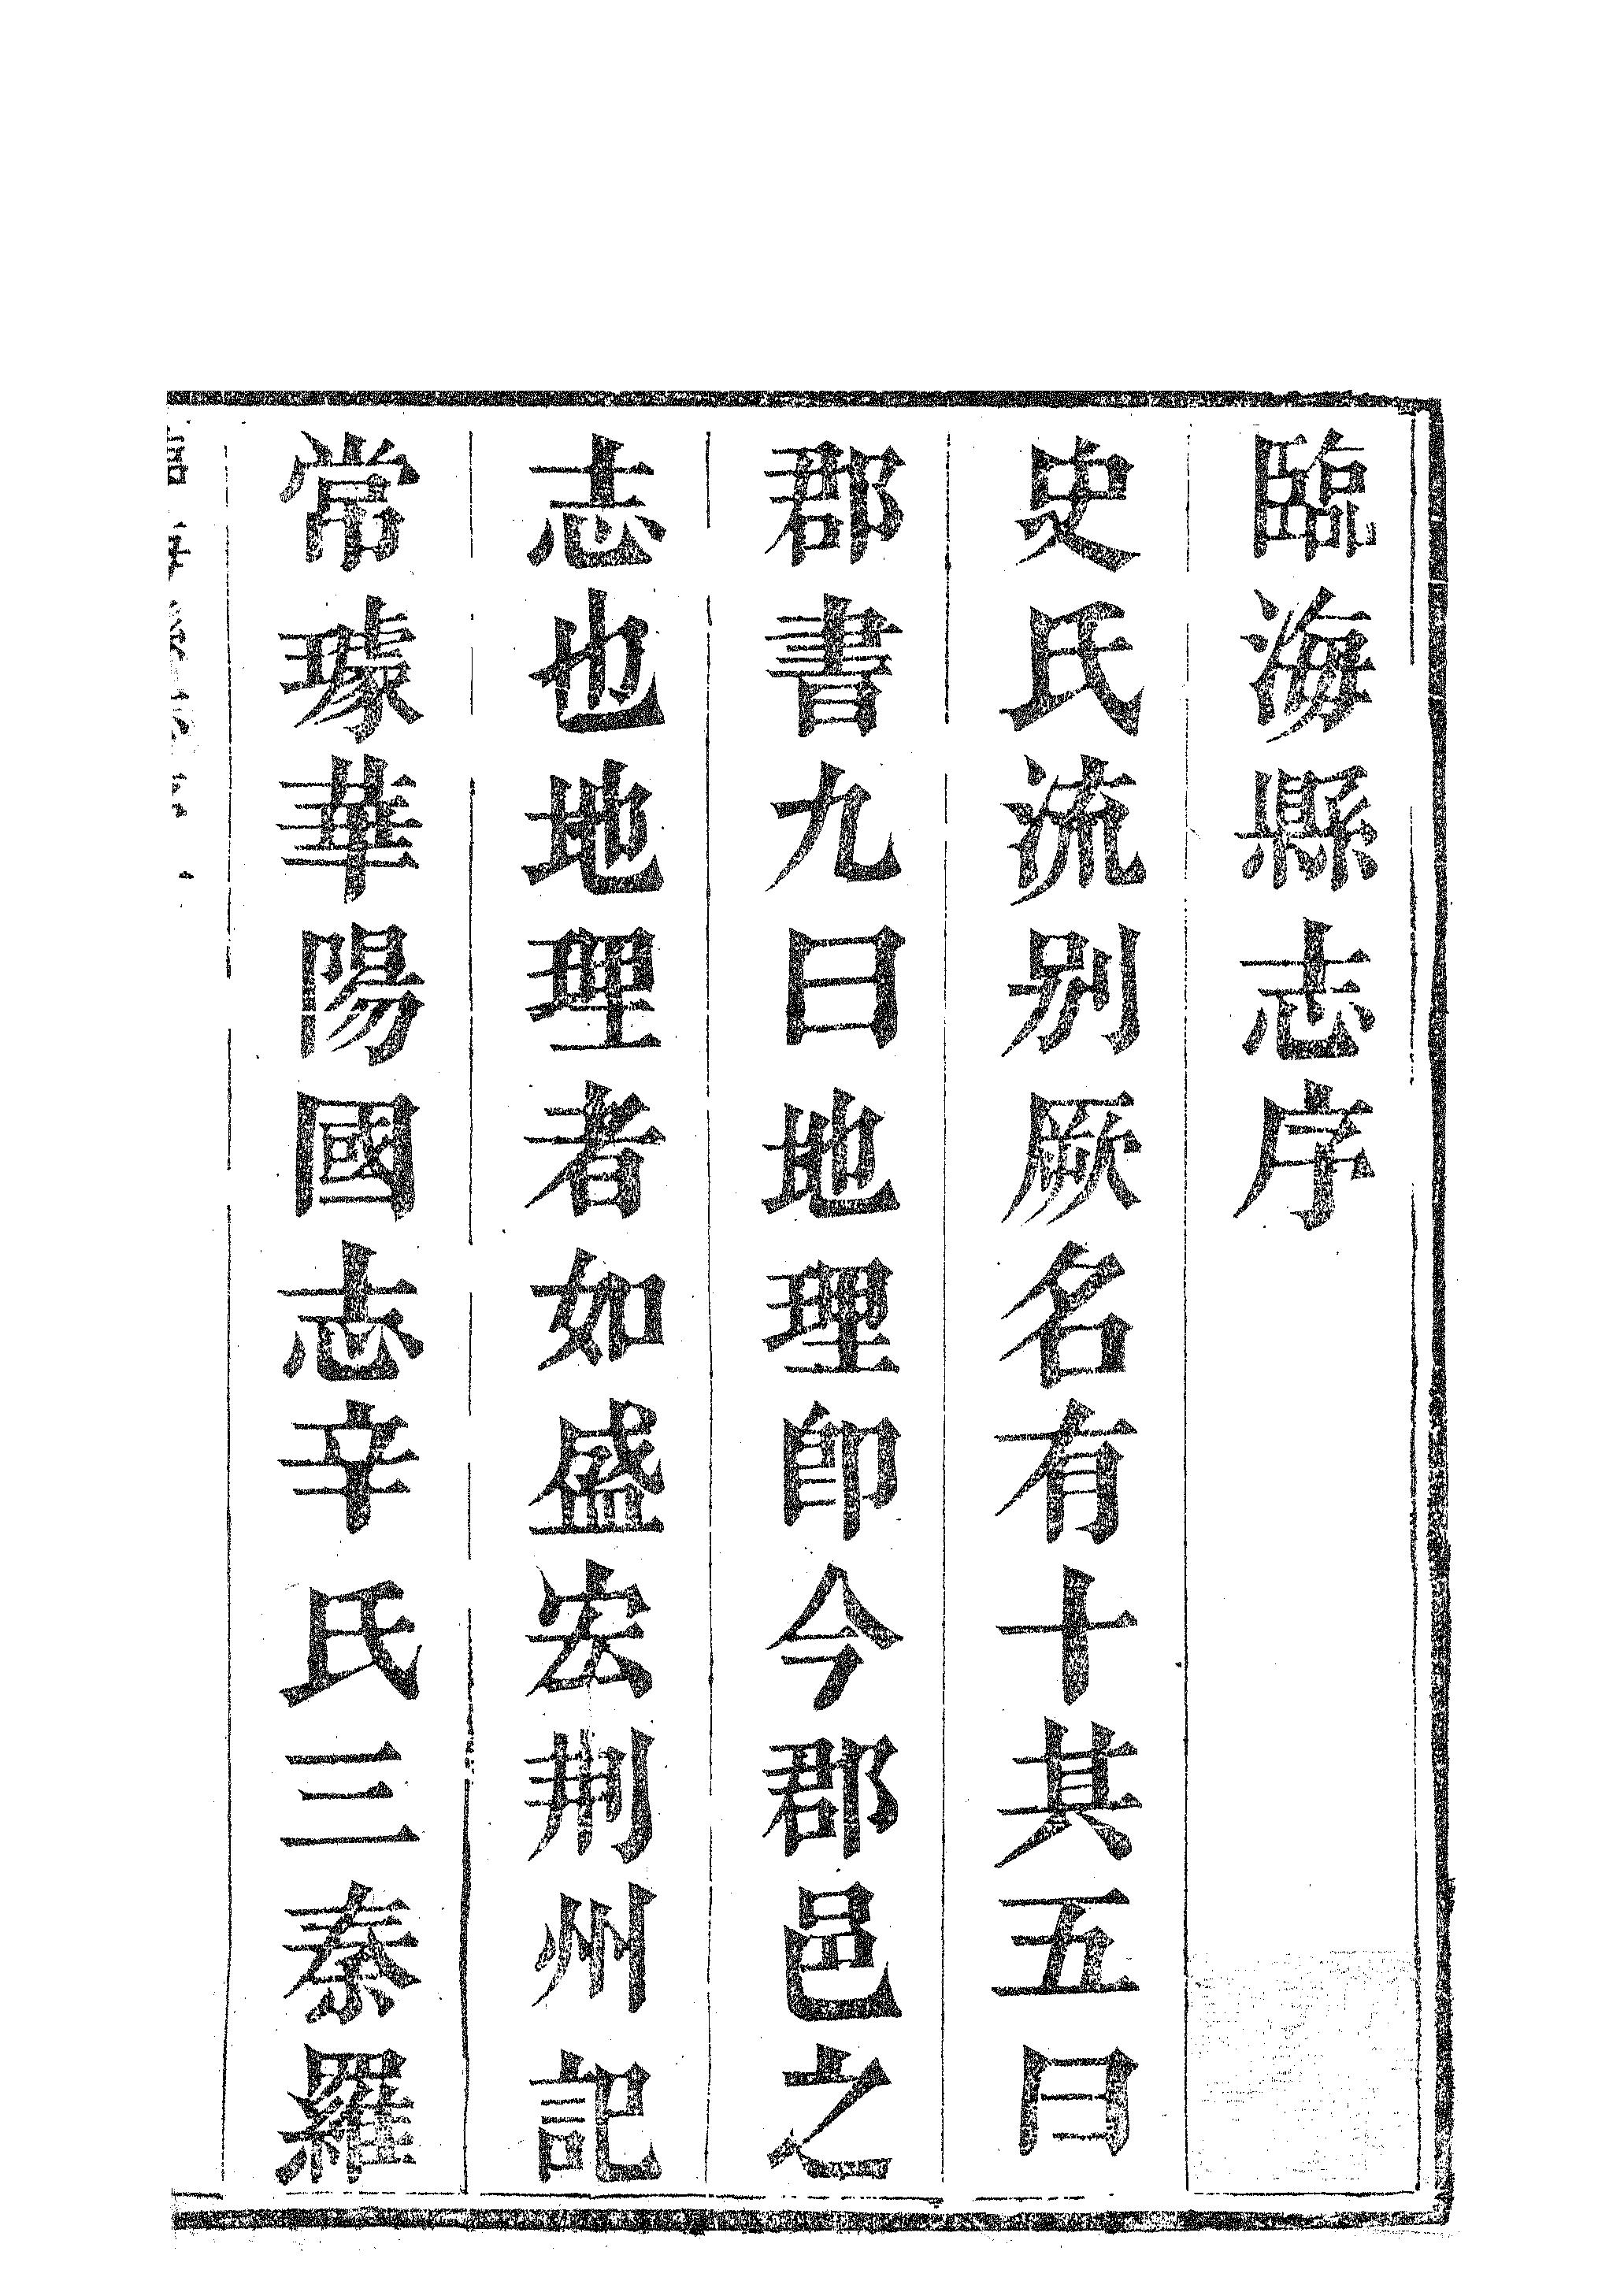 臨海縣志序
史氏流别厥名有十其五曰
郡書九曰地理卽今郡邑之
志也地理者如盛宏荆州記
常璩華陽國志辛氏三秦羅